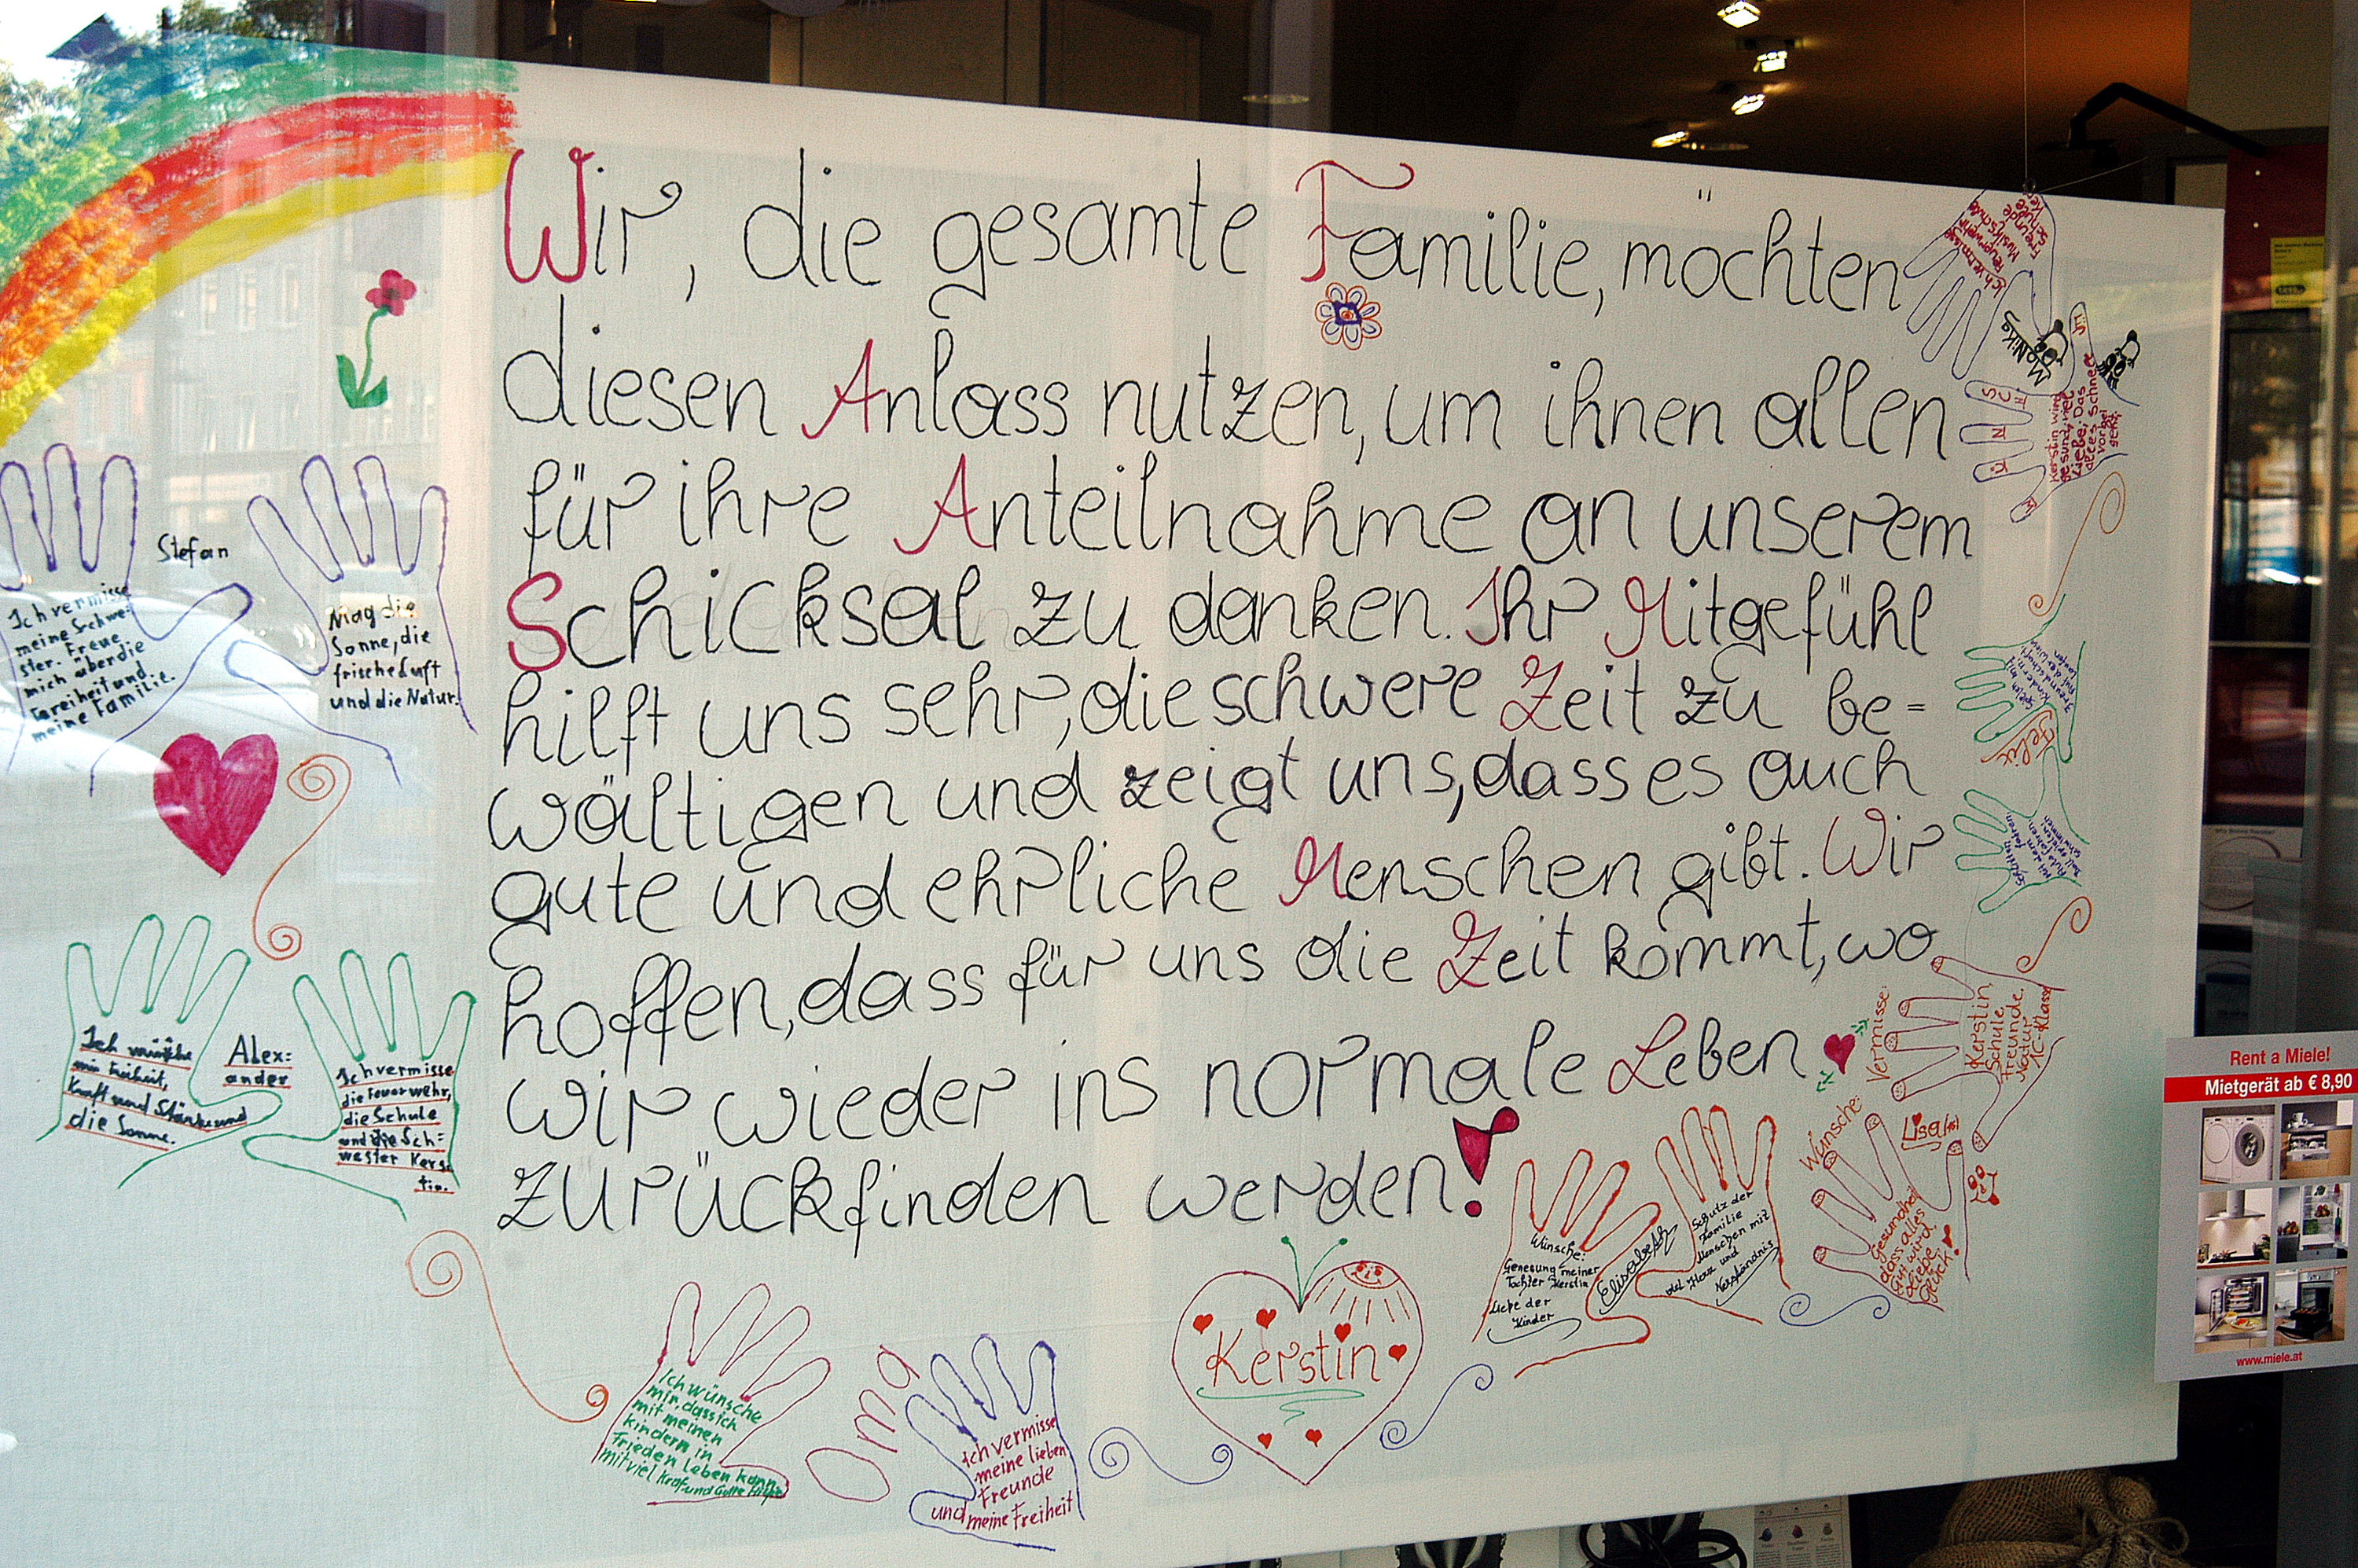 Wir, die gesamte Familie, möchten
diesen Anlass nutzen, um ihnen allen
für ihre Anteilnahme an unserem
Schicksal zu danken. Ihr Mitgefühl
hilft uns sehr, die schwere Zeit zu be=
wältigen und zeigt uns, dass es auch
gute und ehrliche Menschen gibt. Wir
hoffen, dass für uns die Zeit kommt, wo
wir wieder ins normale Leben
zurückfinden werden!
Stefan
Ich vermisse
meine Schwe=
ster. Freue
mich über die
Freiheit und
meine Familie.
Mag die
Sonne, die
frische Luft
und die Natur.
Alex=
ander
Ich
mir Freiheit,
Kraft und Stärke und
die Sonne.
Ich vermisse
die Feuerwehr,
die Schule
und die Sch=
wester Kers=
tin.
Oma
Ich wünsche
mir, dass ich
mit meinen
kindern in
Frieden leben kann
mit viel Kraft und Gottes
Ich vermisse
meine lieben
Freunde
und meine Freiheit
Kerstin
Elisabeth
Wünsche:
Genesung meiner
Tochter Kerstin
Liebe der
Kinder
Schutz der
Familie
Menschen mit
viel Herz und
Verständnis
Lisa
Vermisse:
Kerstin,
Schule,
Freunde,
Natur
1C-Klasse
Wünsche:
Gesundheit
dass alles
Gut wird,
Liebe
Glück!
Felix
Monika
Ich vermisse
Feuerwehr
Musikschule
Freunde
Kerstin wird
gesund, viel
Liebe, Das
alles schnell
vorbei
geht,
Rent a Miele!
Mietgerät ab € 8,90
www.miele.at